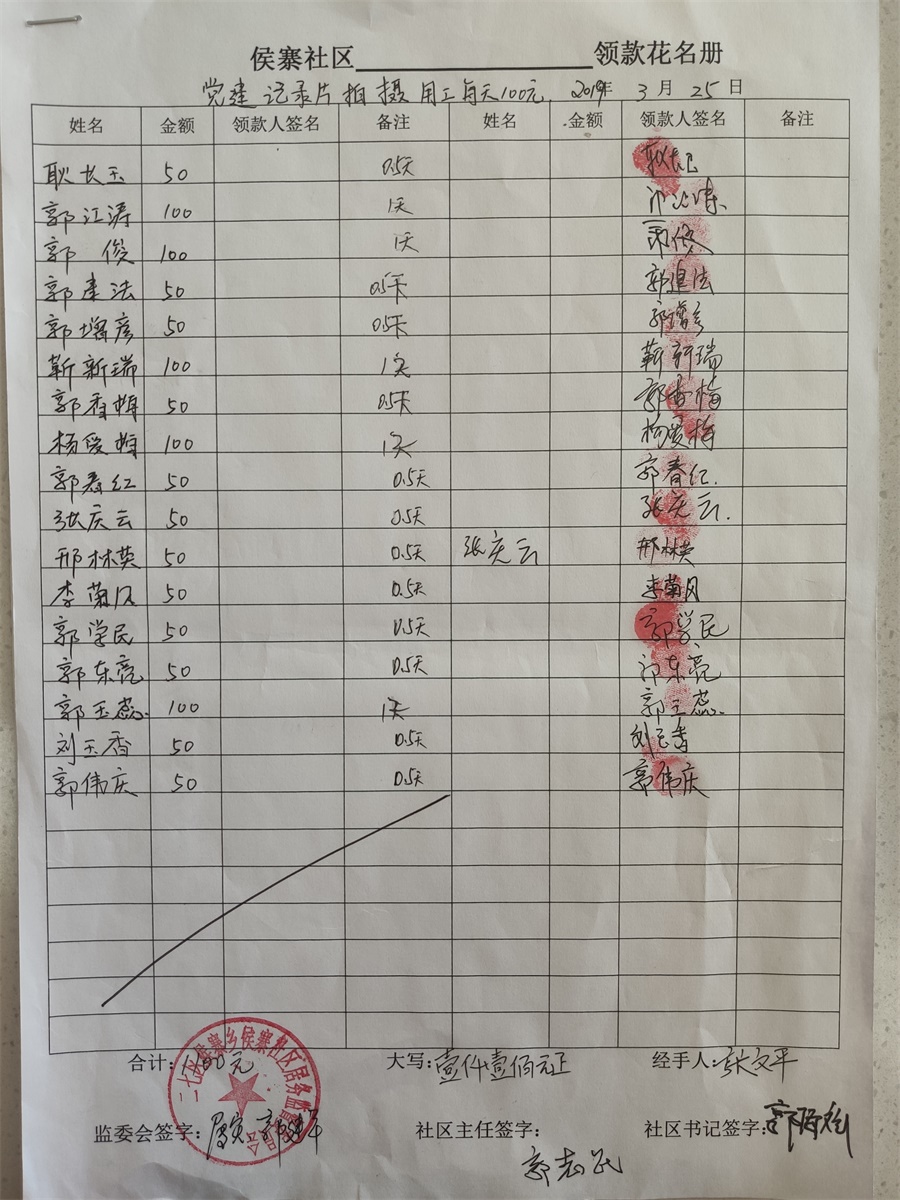 侯寨社区 领款花名册
党建记录片拍摄用工每天100元. 2019年 3月 25日
姓名 金额 领款人签名 备注 姓名 金额 领款人签名 备注
耿长玉 50 0.5天
郭江涛 100 1天
郭俊 100 1天 郭俊
郭建法 50 0.5天 郭建法
郭增彦 50 0.5天 郭增彦
靳新瑞 100 1天 靳新瑞
郭香梅 50 0.5天 郭香梅
杨爱梅 100 1天 杨爱梅
郭春红 50 0.5天 郭春红.
张庆云 50 0.5天 张庆云.
邢林英 50 0.5天 张庆云 邢林英
李菊风 50 0.5天 李菊风
郭学民 50 0.5天 郭学民
郭东亮 50 0.5天 郭东亮
郭玉蕊. 100 1天 郭玉蕊.
刘玉香 50 0.5天 刘玉香
郭伟庆 50 0.5天 郭伟庆
合计: 1100元 大写: 壹仟壹佰元正 经手人: 张文平
监委会签字: 社区主任签字: 社区书记签字:
郭志民